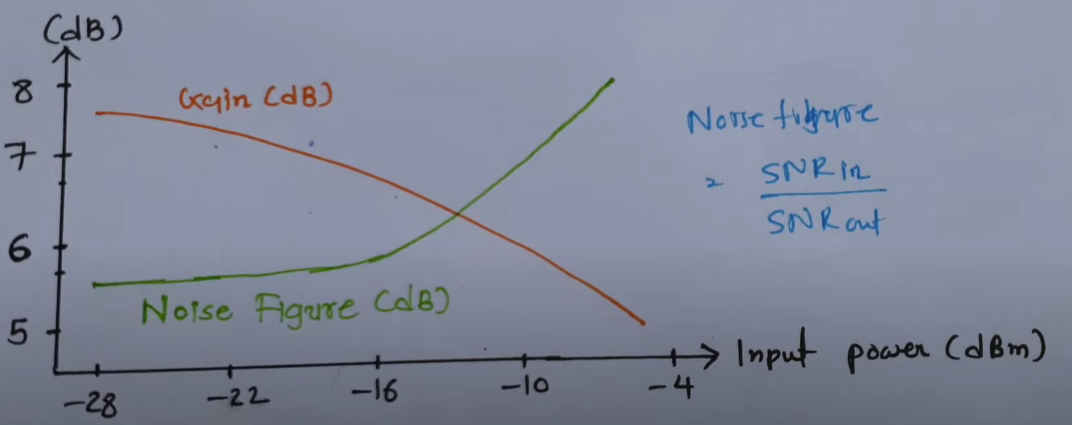 (dB)
8
Gain (dB)
7
6
5
Noise Figure (dB)
-28
-22
-16
-10
-4
Input power (dBm)
Noise figure
= SNR in
SNR out